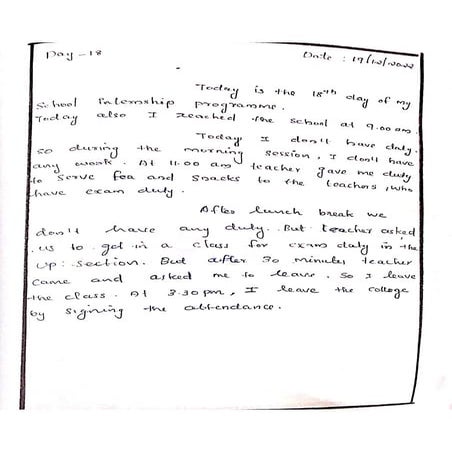 Day - 18 Date : 19/12/2022
Today is the 18th day of my
School Internship programme.
Today also I reached the school at 9.00 am.
Today I don't have duty.
So during the morning session, I don't have
any work. At 11.00 am teacher gave me duty
to serve Tea and Snacks to the teachers, who
have exam duty.
After lunch break we
don't have any duty. But teacher asked
us to got in a class for exam duty in the
up: section. But after 30 minutes teacher
came and asked me to leave. So I leave
the class. At 3.30 pm, I leave the college
by signing the attendance.